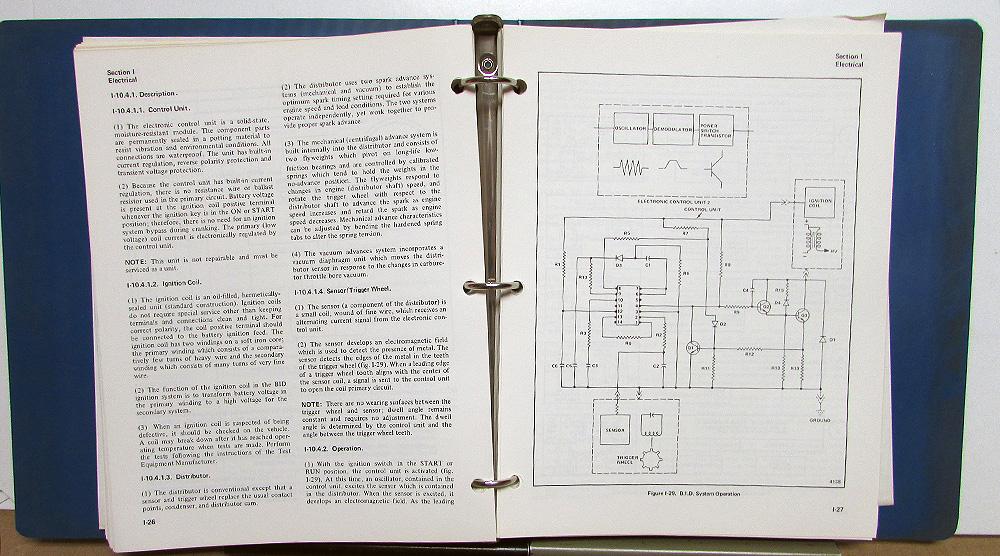 Section I
Electrical
I-10.4.1. Description.
I-10.4.1.1. Control Unit.
(1) The electronic control unit is a solid-state,
moisture-resistant module. The component parts
are permanently sealed in a potting material to
resist vibration and environmental conditions. All
connections are waterproof. The unit has built-in
current regulation, reverse polarity protection and
transient voltage protection.
(2) Because the control unit has built-in current
regulation, there is no resistance wire or ballast
resistor used in the primary circuit. Battery voltage
is present at the ignition coil positive terminal
whenever the ignition key is in the ON or START
position; therefore, there is no need for an ignition
system bypass during cranking. The primary (low
voltage) coil current is electronically regulated by
the control unit.
NOTE: This unit is not repairable and must be
serviced as a unit.
I-10.4.1.2. Ignition Coil.
(1) The ignition coil is an oil-filled, hermetically-
sealed unit (standard construction). Ignition coils
do not require special service other than keeping
terminals and connections clean and tight. For
correct polarity, the coil positive terminal should
be connected to the battery ignition feed. The
ignition coil has two windings on a soft iron core;
the primary winding which consists of a compara-
tively few turns of heavy wire and the secondary
winding which consists of many turns of very fine
wire.
(2) The function of the ignition coil in the BID
ignition system is to transform battery voltage in
the primary winding to a high voltage for the
secondary system.
(3) When an ignition coil is suspected of being
defective, it should be checked on the vehicle.
A coil may break down after it has reached oper-
ating temperature when tests are made. Perform
the tests following the instructions of the Test
Equipment Manufacturer.
I-10.4.1.3. Distributor.
(1) The distributor is conventional except that a
sensor and trigger wheel replace the usual contact
points, condenser, and distributor cam.
I-26
(2) The distributor uses two spark advance sys-
tems (mechanical and vacuum) to establish the
optimum spark timing setting required for various
engine speed and load conditions. The two systems
operate independently, yet work together to pro-
vide proper spark advance.
(3) The mechanical (centrifugal) advance system is
built internally into the distributor and consists of
two flyweights which pivot on long-life low-
friction bearings and are controlled by calibrated
springs which tend to hold the weights in the
no-advance position. The flyweights respond to
changes in engine (distributor shaft) speed, and
rotate the trigger wheel with respect to the
distributor shaft to advance the spark as engine
speed increases and retard the spark as engine
speed decreases. Mechanical advance characteristics
can be adjusted by bending the hardened spring
tabs to alter the spring tension.
(4) The vacuum advances system incorporates a
vacuum diaphragm unit which moves the distri-
butor sensor in response to the changes in carbure-
tor throttle bore vacuum.
I-10.4.1.4. Sensor/Trigger Wheel.
(1) The sensor (a component of the distributor) is
a small coil, wound of fine wire, which receives an
alternating current signal from the electronic con-
trol unit.
(2) The sensor develops an electromagnetic field
which is used to detect the presence of metal. The
sensor detects the edges of the metal in the teeth
of the trigger wheel (fig. I-29). When a leading edge
of a trigger wheel tooth aligns with the center of
the sensor coil, a signal is sent to the control unit
to open the coil primary circuit.
NOTE: There are no wearing surfaces between the
trigger wheel and sensor; dwell angle remains
constant and requires no adjustment. The dwell
angle is determined by the control unit and the
angle between the trigger wheel teeth.
I-10.4.2. Operation.
(1) With the ignition switch in the START or
RUN position, the control unit is activated (fig.
I-29). At this time, an oscillator, contained in the
control unit, excites the sensor which is contained
in the distributor. When the sensor is excited, it
develops an electromagnetic field. As the leading
Section I
Electrical
OSCILLATOR
DEMODULATOR
POWER
SWITCH
TRANSISTOR
ELECTRONIC CONTROL UNIT
CONTROL UNIT
IGNITION
COIL
HV
R5
R7
R1
D3
C1
R13
R6
R8
R3
R2
R4
C6
C5
C3
C2
C4
R15
D4
Q2
R9
Q3
D2
D1
Q1
R12
R11
GROUND
SENSOR
TRIGGER
WHEEL
Figure I-29. B.I.D. System Operation
I-27